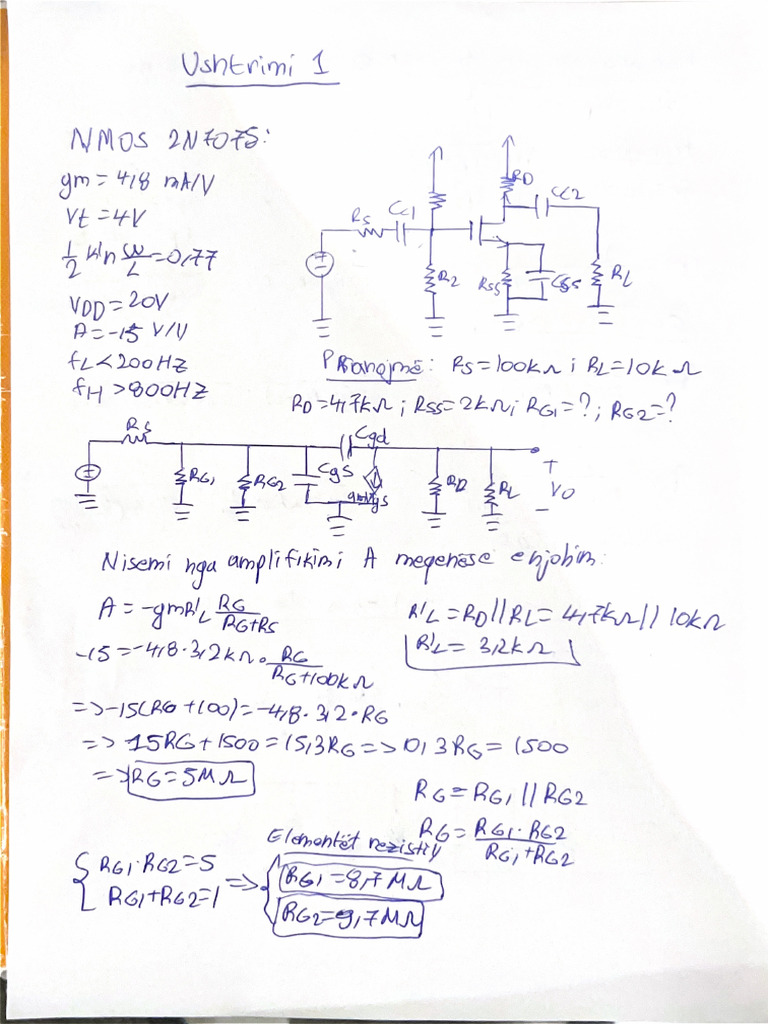 Ushtrimi 1
NMOS 2N7075:
gm = 4,8 mA/V
Vt = 4V
1/2 k'n W/L = 0,77
VDD = 20V
A = -15 V/V
fL < 200HZ
fH > 800HZ
RD
CC2
Rs
CC1
R2
Rss
Css
RL
Pranojmë: RS = 100kΩ ; RL = 10kΩ
RD = 4,7kΩ ; RSS = 2kΩ ; RG1 = ? ; RG2 = ?
Rs
Cgd
RG1
RG2
Cgs
gmVgs
RD
RL
+
Vo
-
Nisemi nga amplifikimi A megenëse enjohim:
A = -gmR'L RG/RG+RS
R'L = RD//RL = 4,7kΩ // 10kΩ
-15 = -4,8·3,2kΩ · RG/RG+100kΩ
R'L = 3,2kΩ
=> -15(RG+100) = -4,8·3,2·RG
=> 15RG+1500 = 15,3RG => 0,3RG = 1500
=> RG = 5MΩ
RG = RG1 // RG2
RG = RG1·RG2/RG1+RG2
Elementët rezistiv
{ RG1·RG2 = 5
RG1+RG2 = 1 => { RG1 = 8,7MΩ
RG2 = 9,7MΩ